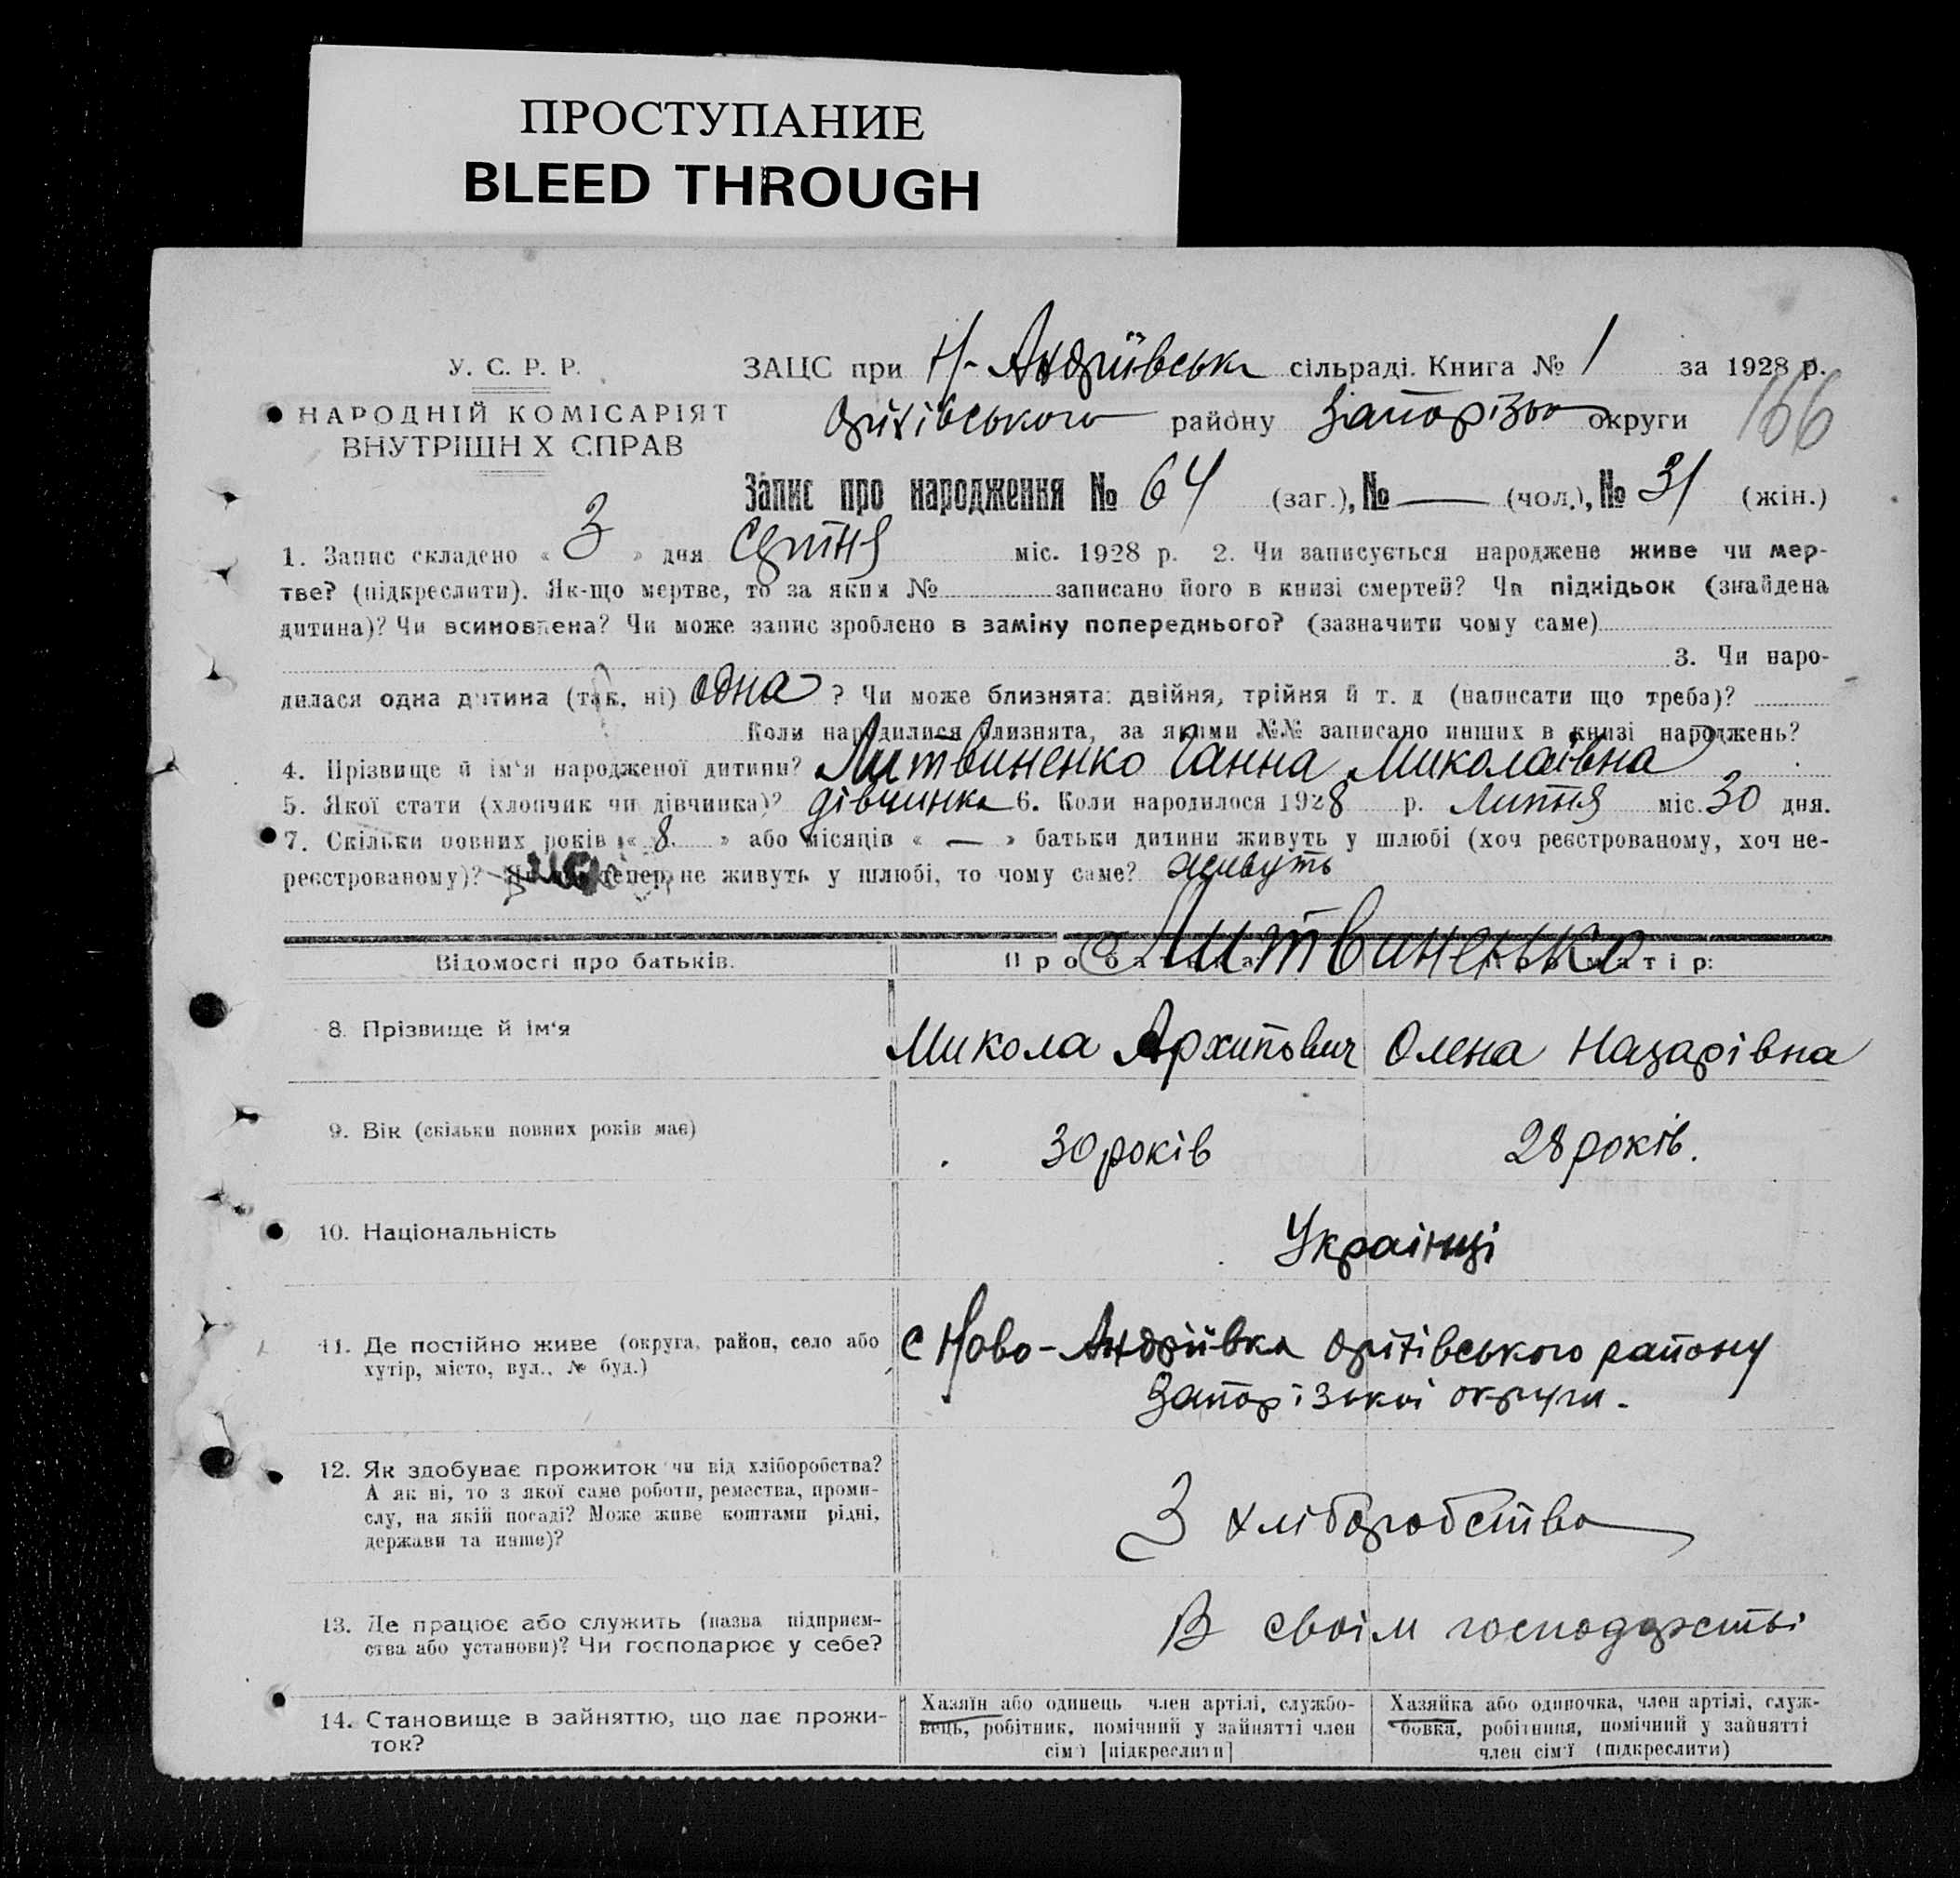 ПРОСТУПАНИЕ
BLEED THROUGH
У. С. Р. Р.
НАРОДНІЙ КОМІСАРІЯТ
ВНУТРІШН Х СПРАВ
ЗАЦС при Н-Андріївськ сільраді. Книга № 1 за 1928 р.
Оріхівського району Запорізьк округи 166
Запис про народження № 64 (заг.), № — (чол.), № 31 (жін.)
1. Запис складено « 3 » дня серпня міс. 1928 р. 2. Чи записується народжене живе чи мер-
тве? (підкреслити). Як-що мертве, то за яким № записано його в книзі смертей? Чи підкідьок (знайдена
дитина)? Чи всиновлена? Чи може запис зроблено в заміну попереднього? (зазначити чому саме)
3. Чи наро-
дилася одна дитина (так, ні) одна ? Чи може близнята: двійня, трійня й т. д (написати що треба)?
Коли народилися близнята, за якими №№ записано инших в книзі народжень?
4. Прізвище й ім‘я народженої дитини? Литвиненко Ганна Миколаівна
5. Якої стати (хлопчик чи дівчинка)? дівчинка 6. Коли народилося 1928 р. липня міс. 30 дня.
7. Скільки повних років « 8 » або місяців « — » батьки дитини живуть у шлюбі (хоч реєстрованому, хоч не-
реєстрованому)? тепер не живуть у шлюбі, то чому саме? живуть
Литвиненько
Відомості про батьків. Про батька Про матір:
8. Прізвище й ім‘я Микола Архипович Олена Назарівна
9. Вік (скільки повних років має) 30 років 28 років.
10. Національність Украінці
11. Де постійно живе (округа, район, село або с Ново-Андріївка Оріхівського району
хутір, місто, вул., № буд.) Запорізькоі округи.
12. Як здобуває прожиток чи від хліборобства?
А як ні, то з якої саме роботи, ремества, проми-
слу, на якій посаді? Може живе коштами рідні,
держави та инше)?
З хліборобства
13. Де працює або служить (назва підприєм-
ства або установи)? Чи господарює у себе?
В своім господарстві
14. Становище в зайняттю, що дає прожи-
ток?
Хазяїн або одинець член артілі, службо-
вець, робітник, помічний у зайнятті член
сім‘ї [підкреслити]
Хазяйка або одиночка, член артілі, служ-
бовка, робітниця, помічний у зайнятті
член сім‘ї (підкреслити)